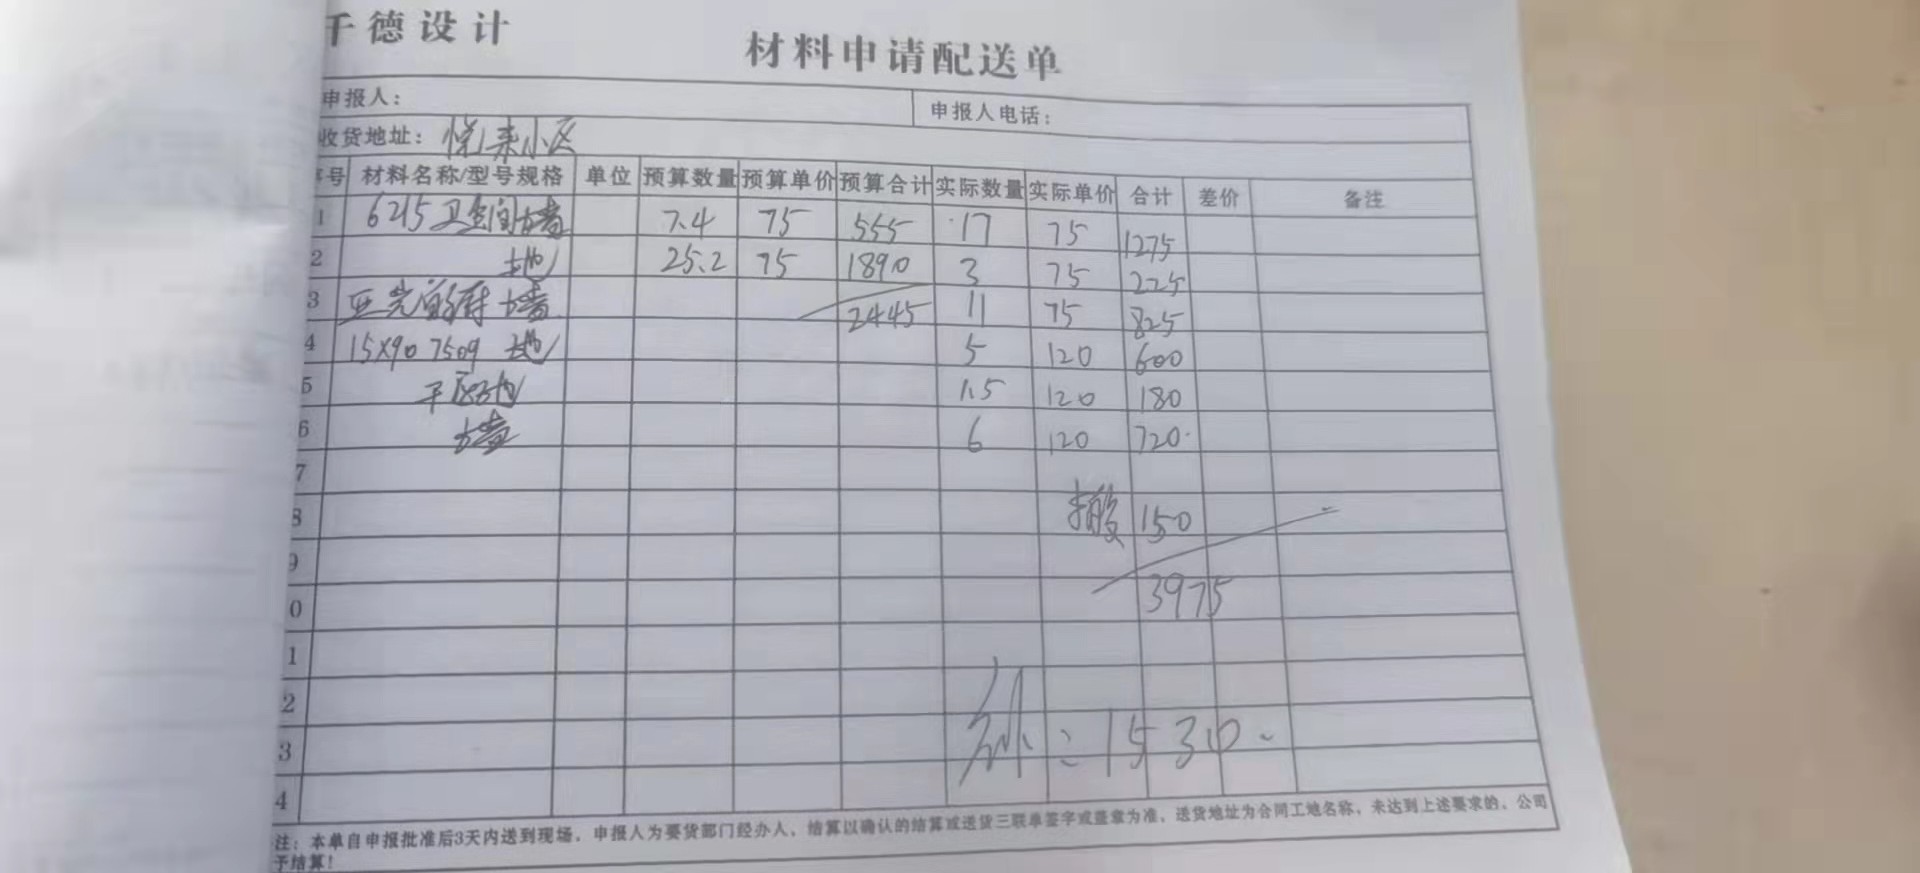 千德设计
材料申请配送单
申报人： 申报人电话：
收货地址： 悦来小区
序号 材料名称/型号规格 单位 预算数量 预算单价 预算合计 实际数量 实际单价 合计 差价 备注
1 6215 卫生间墙 7.4 75 555 17 75 1275
2 地 25.2 75 1890 3 75 225
3 墙 2445 11 75 825
4 15×90 7509 地 5 120 600
5 干区地 1.5 120 180
6 墙 6 120 720
7
8 搬 150
9
0 3975
1
2
3 补：1530
4
注：本单自申报批准后3天内送到现场，申报人为要货部门经办人，结算以确认的结算或送货三联单签字或盖章为准，送货地址为合同工地名称，未达到上述要求的，公司
予结算！